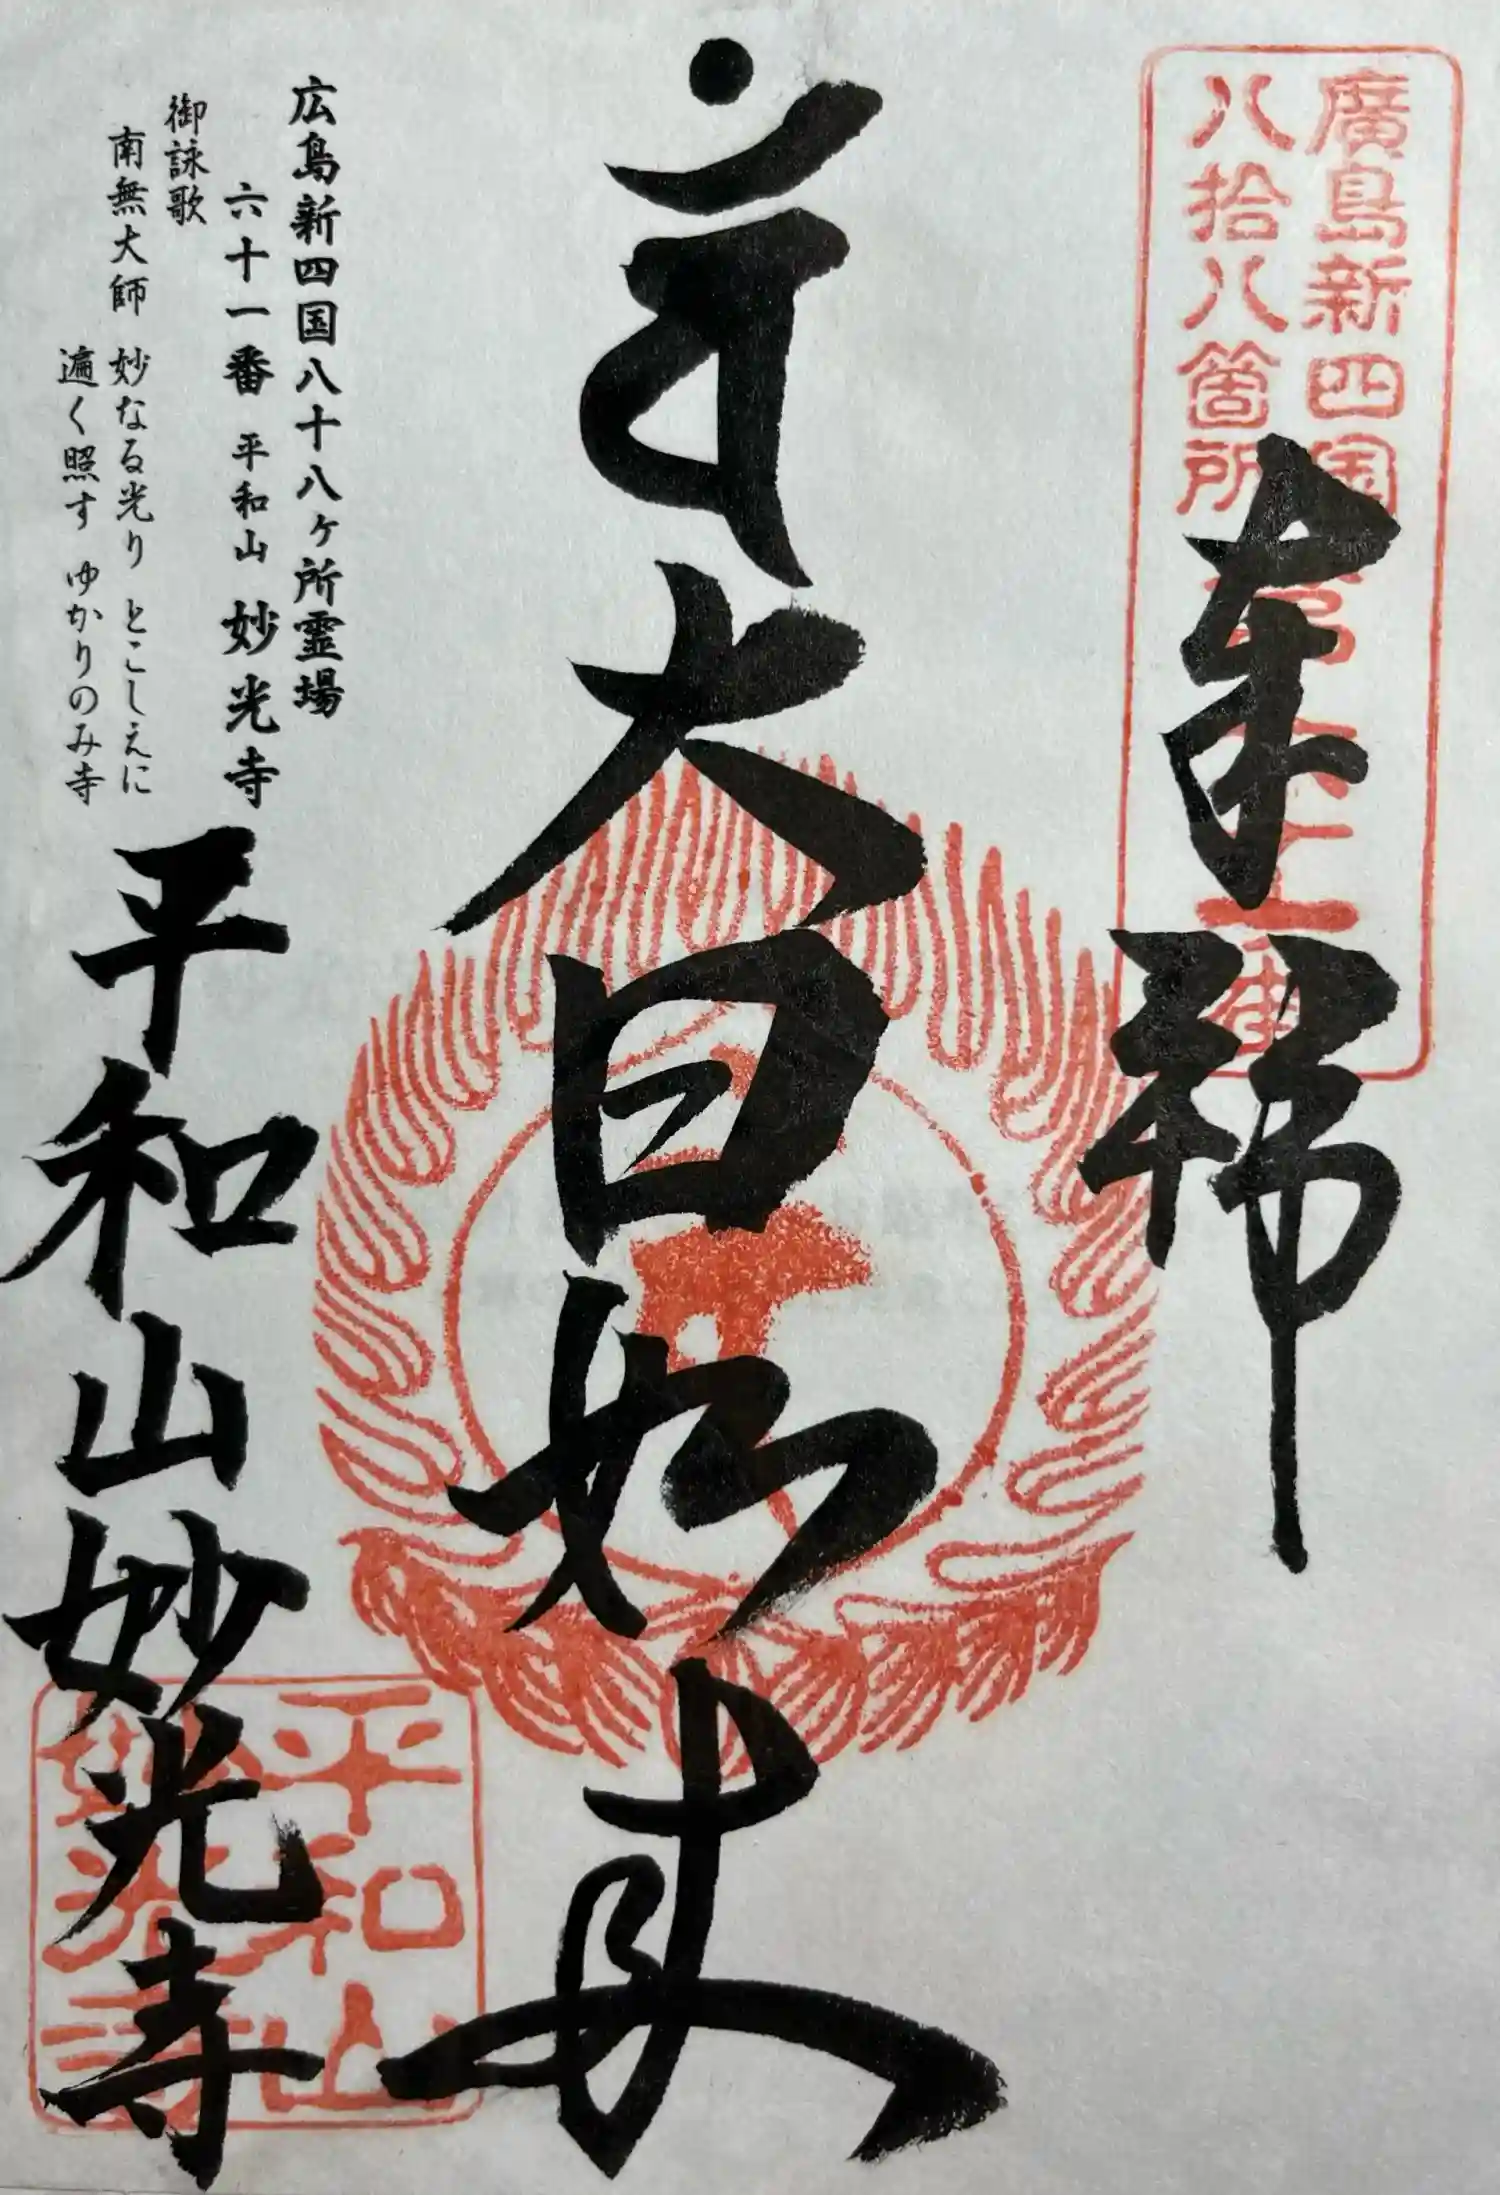 廣島新四國
八拾八箇所
第六十一番
奉拝
大日如来
広島新四国八十八ヶ所霊場
六十一番 平和山 妙光寺
御詠歌
南無大師 妙なる光り とこしえに
遍く照す ゆかりのみ寺
平和山妙光寺
平和山
妙光寺